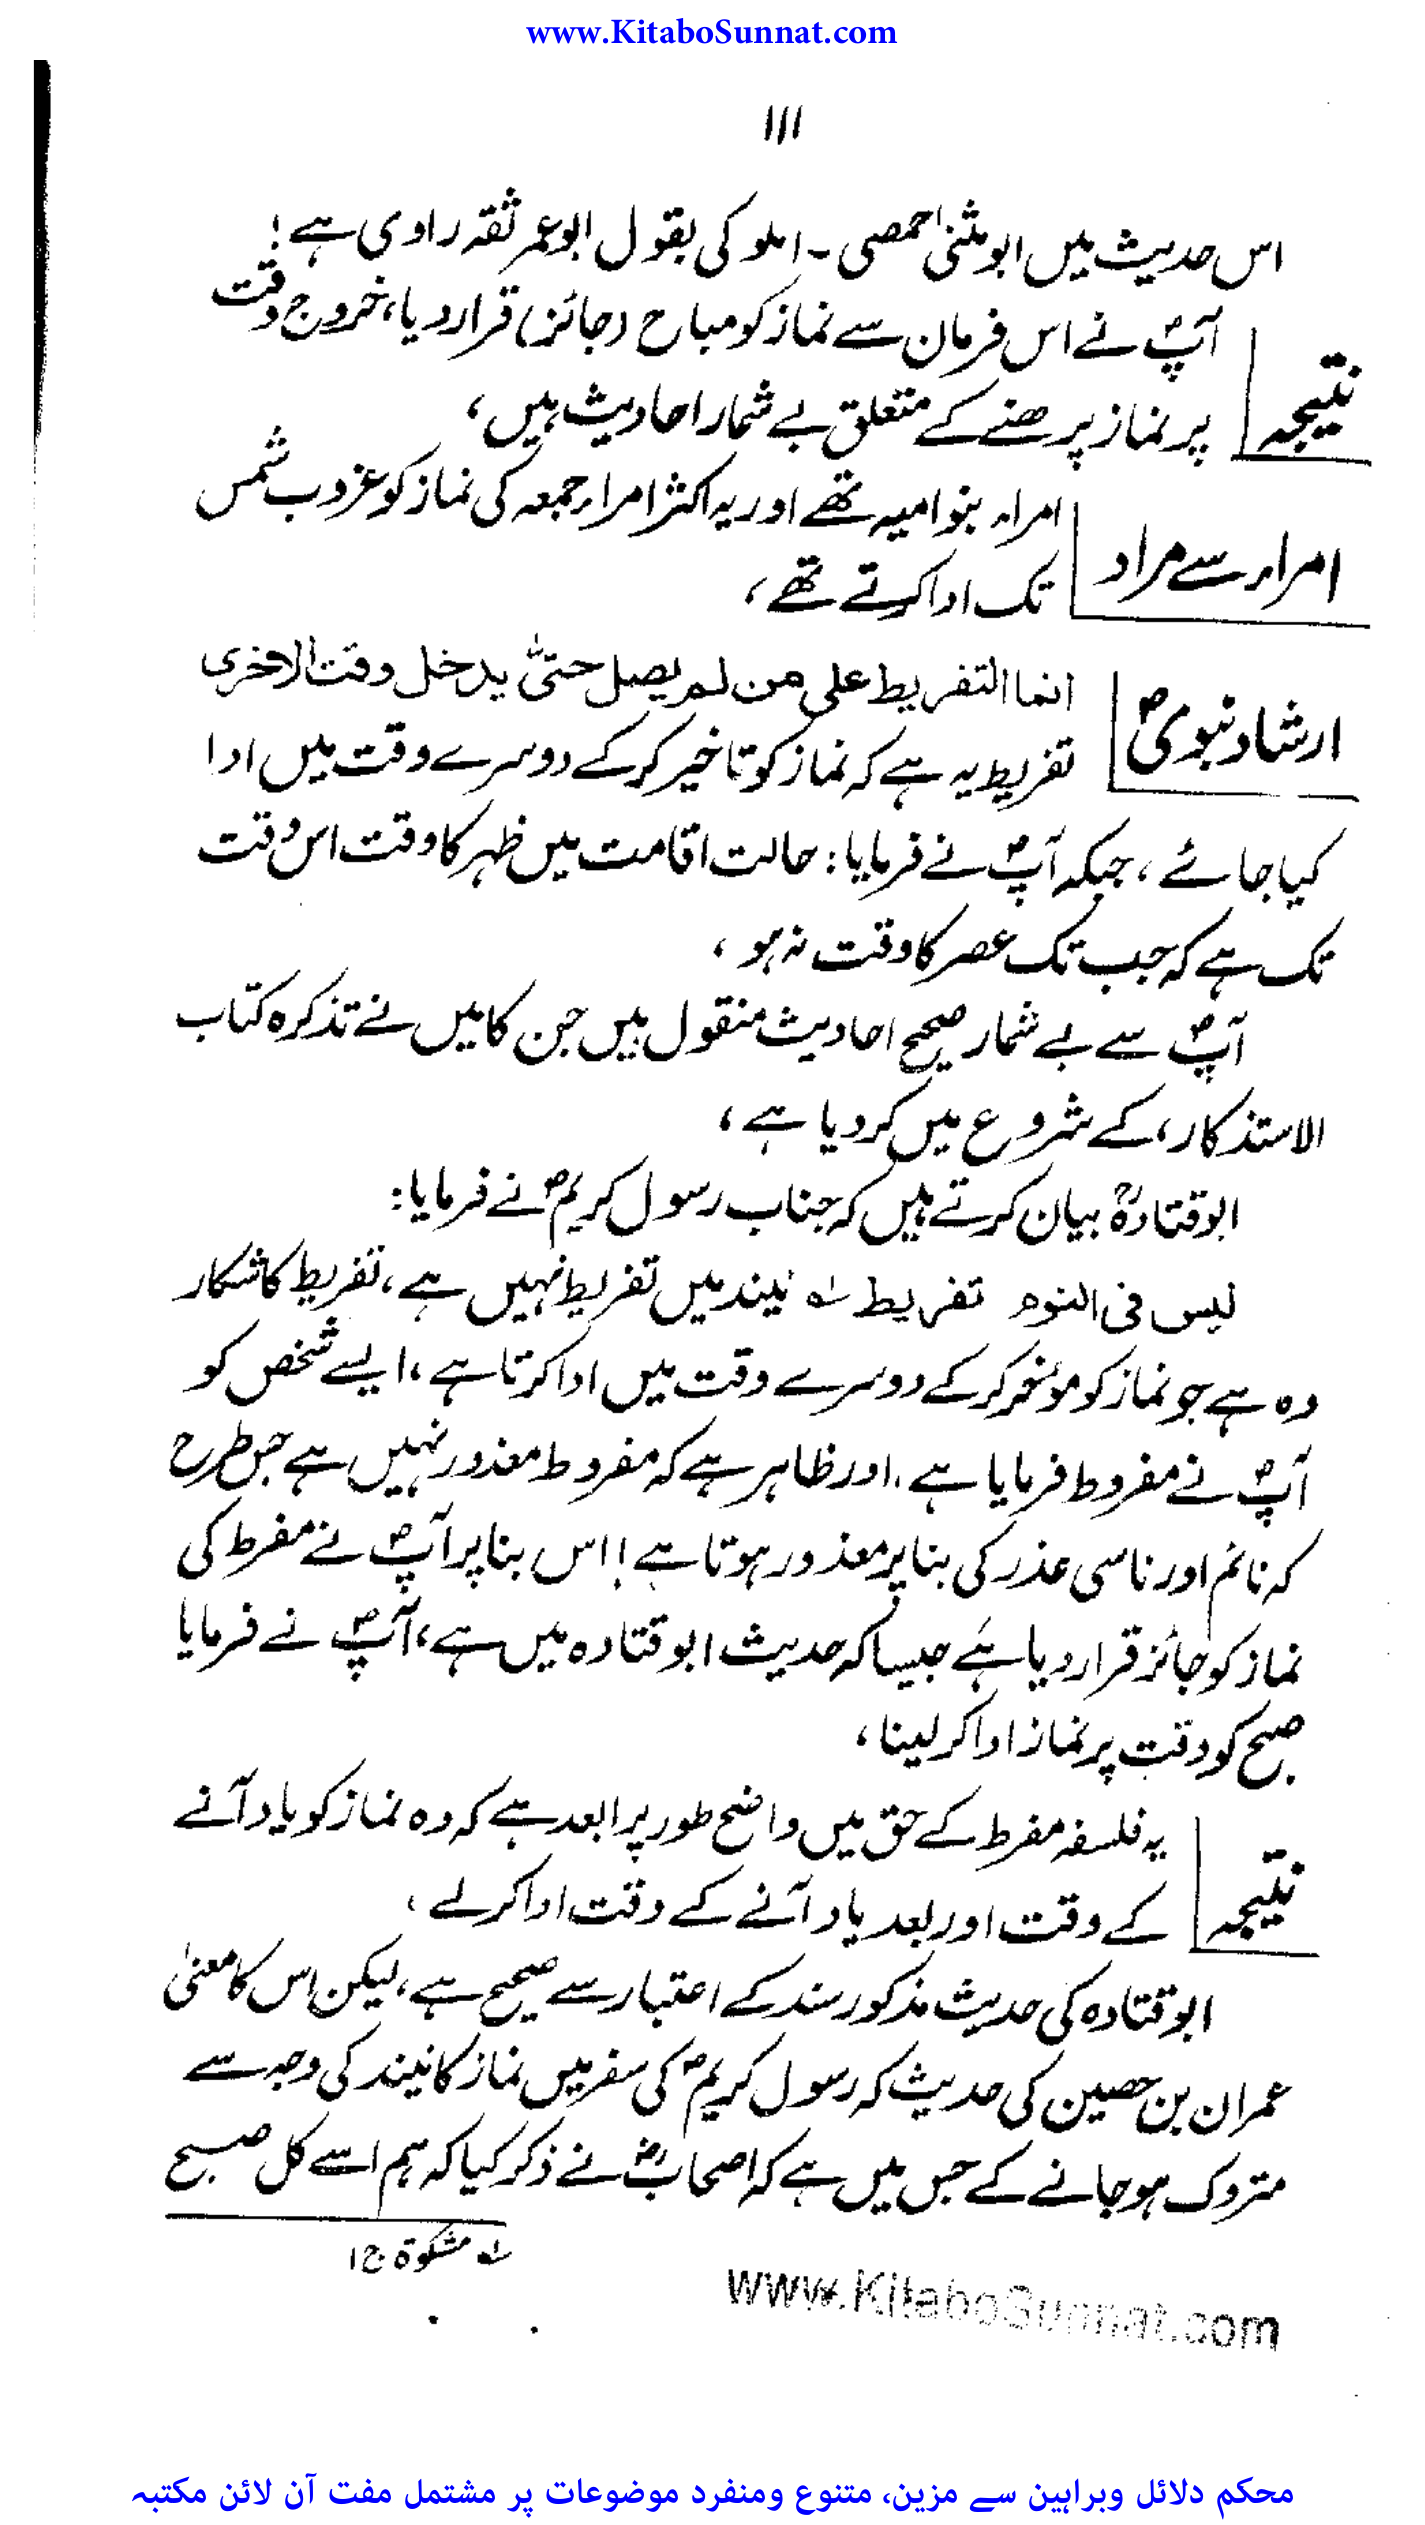 www.KitaboSunnat.com
۱۱۱
اس حدیث میں ابو مثنیٰ احمصی ۔ املو کی بقول ابو عمر ثقہ راوی ہے !
آپؐ نے اس فرمان سے نماز کو مباح (جائز) قرار دیا، خروج وقت
نتیجہ
پر نماز پڑھنے کے متعلق بے شمار احادیث ہیں،
امراء بنو امیہ تھے اور یہ اکثر امراء جمعہ کی نماز کو غروب شمس
امراء سے مراد
تک ادا کرتے تھے،
انما التفریط علی من لم یصل حتیّٰ یدخل وقت الاخری
ارشاد نبویؐ
تفریط یہ ہے کہ نماز کو تاخیر کر کے دوسرے وقت میں ادا
کیا جائے ، جبکہ آپؐ نے فرمایا : حالت اقامت میں ظہر کا وقت اس وقت
تک ہے کہ جب تک عصر کا وقت نہ ہو ،
آپؐ سے بے شمار صحیح احادیث منقول ہیں جن کا میں نے تذکرہ کتاب
الاستذکار، کے شروع میں کر دیا ہے ،
ابو قتادہؓ بیان کرتے ہیں کہ جناب رسول کریمؐ نے فرمایا :
لیس فی النوم تفریط لہ نیند میں تفریط نہیں ہے ، تفریط کا شکار
وہ ہے جو نماز کو مؤخر کر کے دوسرے وقت میں ادا کرتا ہے ، ایسے شخص کو
آپؐ نے مفروط فرمایا ہے ، اور ظاہر ہے کہ مفروط معذور نہیں ہے جس طرح
کہ نائم اور ناسی عذر کی بنا پر معذور ہوتا ہے ! اس بنا پر آپؐ نے مفرط کی
نماز کو جائز قرار دیا ہے جیسا کہ حدیث ابو قتادہ میں ہے ، آپؐ نے فرمایا
صبح کو وقت پر نماز ادا کر لینا ،
یہ فلسفہ مفرط کے حق میں واضح طور پر ابعد ہے کہ وہ نماز کو یاد آنے
نتیجہ
کے وقت اور بعد یاد آنے کے وقت ادا کرلے ،
ابو قتادہ کی حدیث مذکور سند کے اعتبار سے صحیح ہے ، لیکن اس کا معنیٰ
عمران بن حصین کی حدیث کہ رسول کریمؐ کی سفر میں نماز کا نیند کی وجہ سے
متروک ہو جانے کے جس میں ہے کہ اصحابؓ نے ذکر کیا کہ ہم اسے کل صبح
لہ مشکوۃ ج۱
www.KitaboSunnat.com
محکم دلائل وبراہین سے مزین، متنوع ومنفرد موضوعات پر مشتمل مفت آن لائن مکتبہ